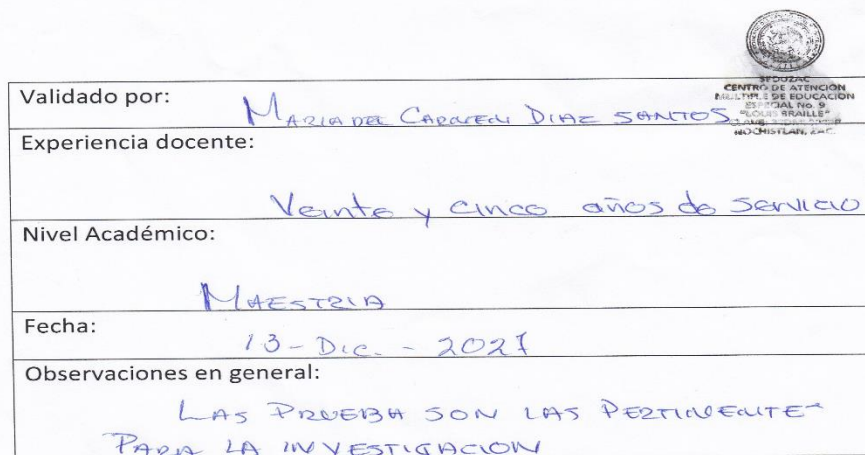 SEDUZAC
CENTRO DE ATENCIÓN
MÚLTIPLE DE EDUCACIÓN
ESPECIAL No. 9
"LOUIS BRAILLE"
NOCHISTLAN, ZAC.
Validado por:
MARIA DEL CARMEN DIAZ SANTOS
Experiencia docente:
Veinte y cinco años de servicio
Nivel Académico:
MAESTRIA
Fecha:
13-Dic.-2021
Observaciones en general:
LAS PRUEBA SON LAS PERTINENTE
PARA LA INVESTIGACION